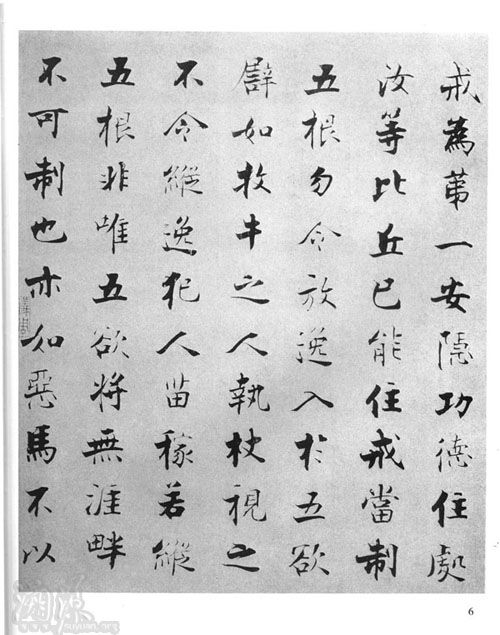 戒為第一安隱功德住處
汝等比丘已能住戒當制
五根勿令放逸入於五欲
譬如牧牛之人執杖視之
不令縱逸犯人苗稼若縱
五根非唯五欲將無涯畔
不可制也亦如惡馬不以
6
suyuan.org